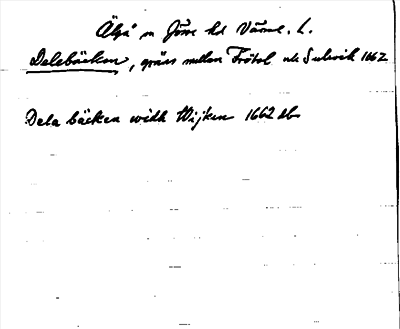 Älgå sn Jösse hd Värml. L.
Delebäcken, gräns mellan Fröbol och Sulvik 1662
Dela bäcken widh Wijken 1662 db